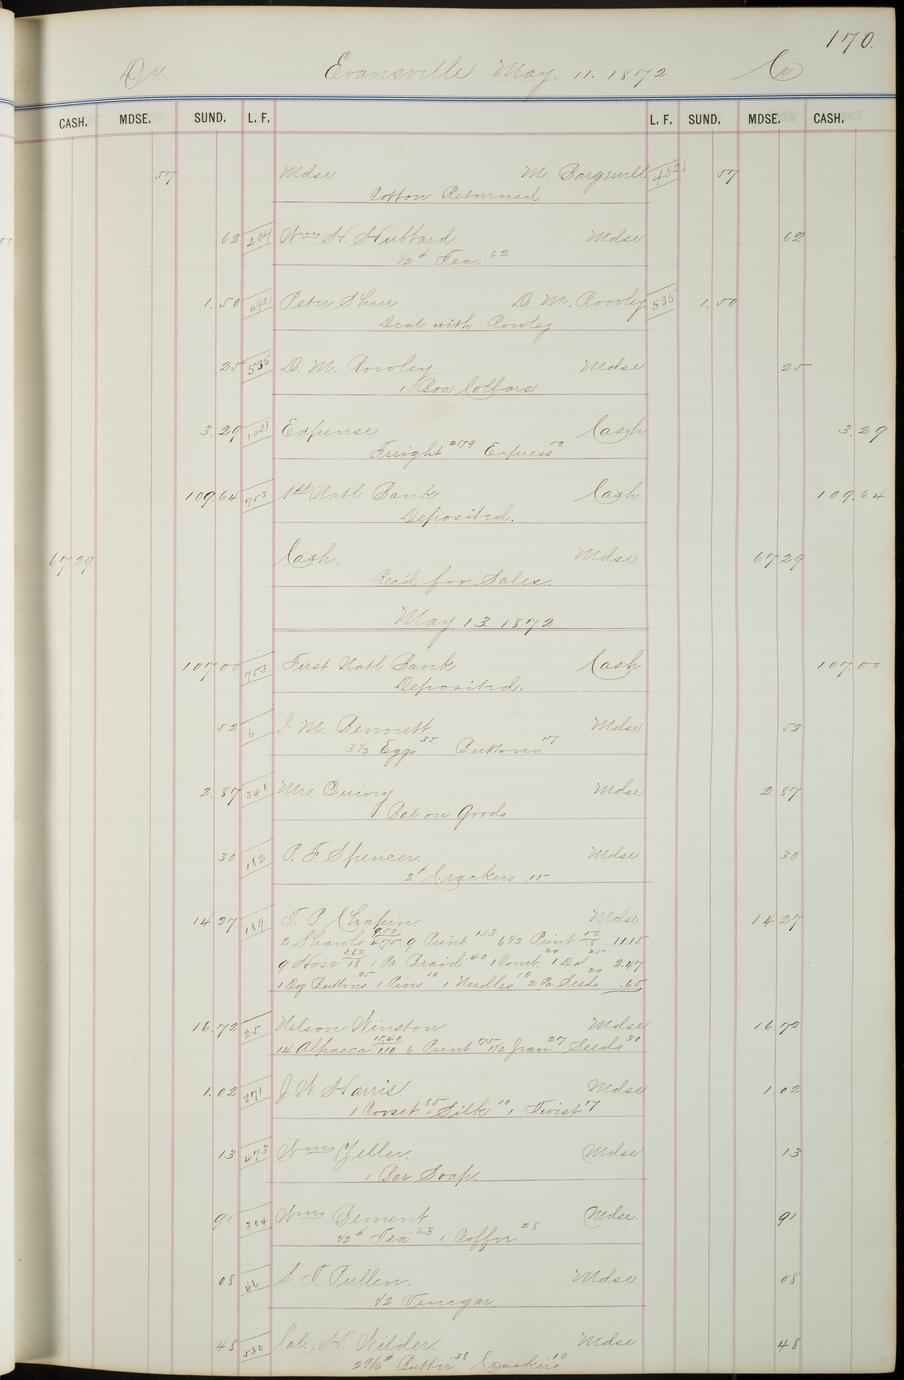 170.
Dr. Evansville May. 11. 1872 Cr
CASH. MDSE. SUND. L. F. L. F. SUND. MDSE. CASH.
57 Mdse M. Bargewell 452 57
Cotton Returned
62 204 Wm H. Hubbard Mdse 62
1/2 # Tea .62
1.50 Peter Shur D. M. Rowley 535 1.50
Deal with Rowley
25 535 D. M. Rowley Mdse 25
1 Box Collars
3.29 Expense Cash 3.29
Freight 279 Express 50
109.64 753 1st Natl Bank Cash 109.64
Deposited.
67.29 Cash. Mdse 67.29
Rec'd for Sales.
May 13. 1872
107.00 753 First Natl Bank Cash 107.00
Deposited.
52 6 J. M. Bennett Mdse 52
3 1/2 Eggs 35 Buttons 17
2.87 341 Mrs Quivey Mdse 2.87
Bal on Goods
30 182 P. F. Spencer. Mdse 30
2 # Crackers .15
14.27 189 T. P. Chapin Mdse 14.27
2 Shawls 9.50 4.75 9 Print 1.13 6 1/2 Print 52 8 11.15
9 Hose 1.62 18 1 Pc Braid 40 1 Comb. 20 1 Do 25 2.47
1 Dz Buttons 25 1 Pins 10 1 Needles 10 2 Pa Seeds 20 .65
16.72 25 Nelson Winston Mdse 16.72
14 Alpacca 15.40 1.10 6 Print 75 1 1/2 Jean 27 Seeds 30
1.02 371 J. W. Harris. Mdse 1.02
1 Corset 85 1 Silk 10 1 Twist 7
13 473 Wm Zeller. Mdse 13
1 Bar Soap.
91 304 Wm Dement Mdse. 91
1/2 # Tea 63 1 Coffee 28
08 46 S. T. Pullen. Mdse 08
1/2 Vinegar.
48 530 Cal. H. Wilder. Mdse 48
Butter 38 Crackers 10